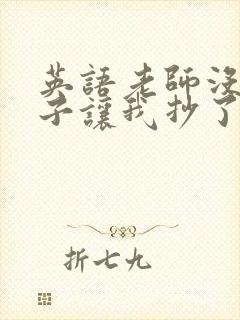 英語老師沒
子讓我抄了
折七九